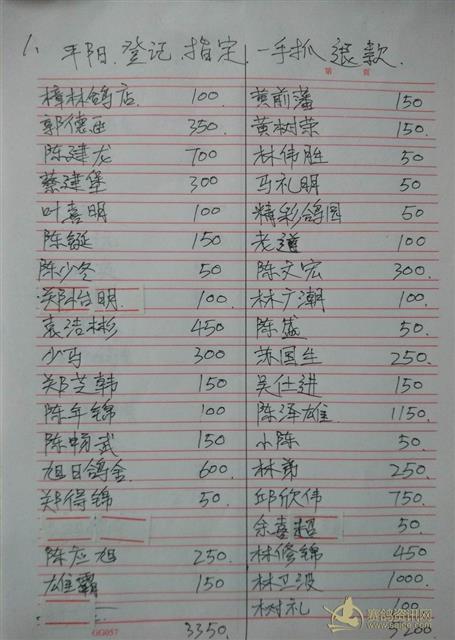 1. 平阳.登记.指定.一手抓退款.
第 页
樟林鸽店. 100. 黄前藩 150
郭德函 350. 黄树荣 150.
陈建龙 700 林伟胜 50
蔡建堡 300 马礼明 50.
叶喜明 100 精彩鸽园 50
陈铤 150 老遵 100
陈少冬 50 陈文宏 300.
郑怡明 100. 林广潮 100.
袁浩彬 450 陈盛 50.
少马 300 苏国生 250.
郑芝韩 150 吴仕进 150
陈年锦 100 陈泽雄. 1150.
陈畅武 150 小陈 50.
旭日鸽舍 600. 林弟 250
郑得锦 50. 邱欣伟 750
余喜超 50
陈应旭 250 林修锦 450
雄霸 150 林卫波 1000.
树礼 100
GG057 3350. 200
赛鸽资讯网